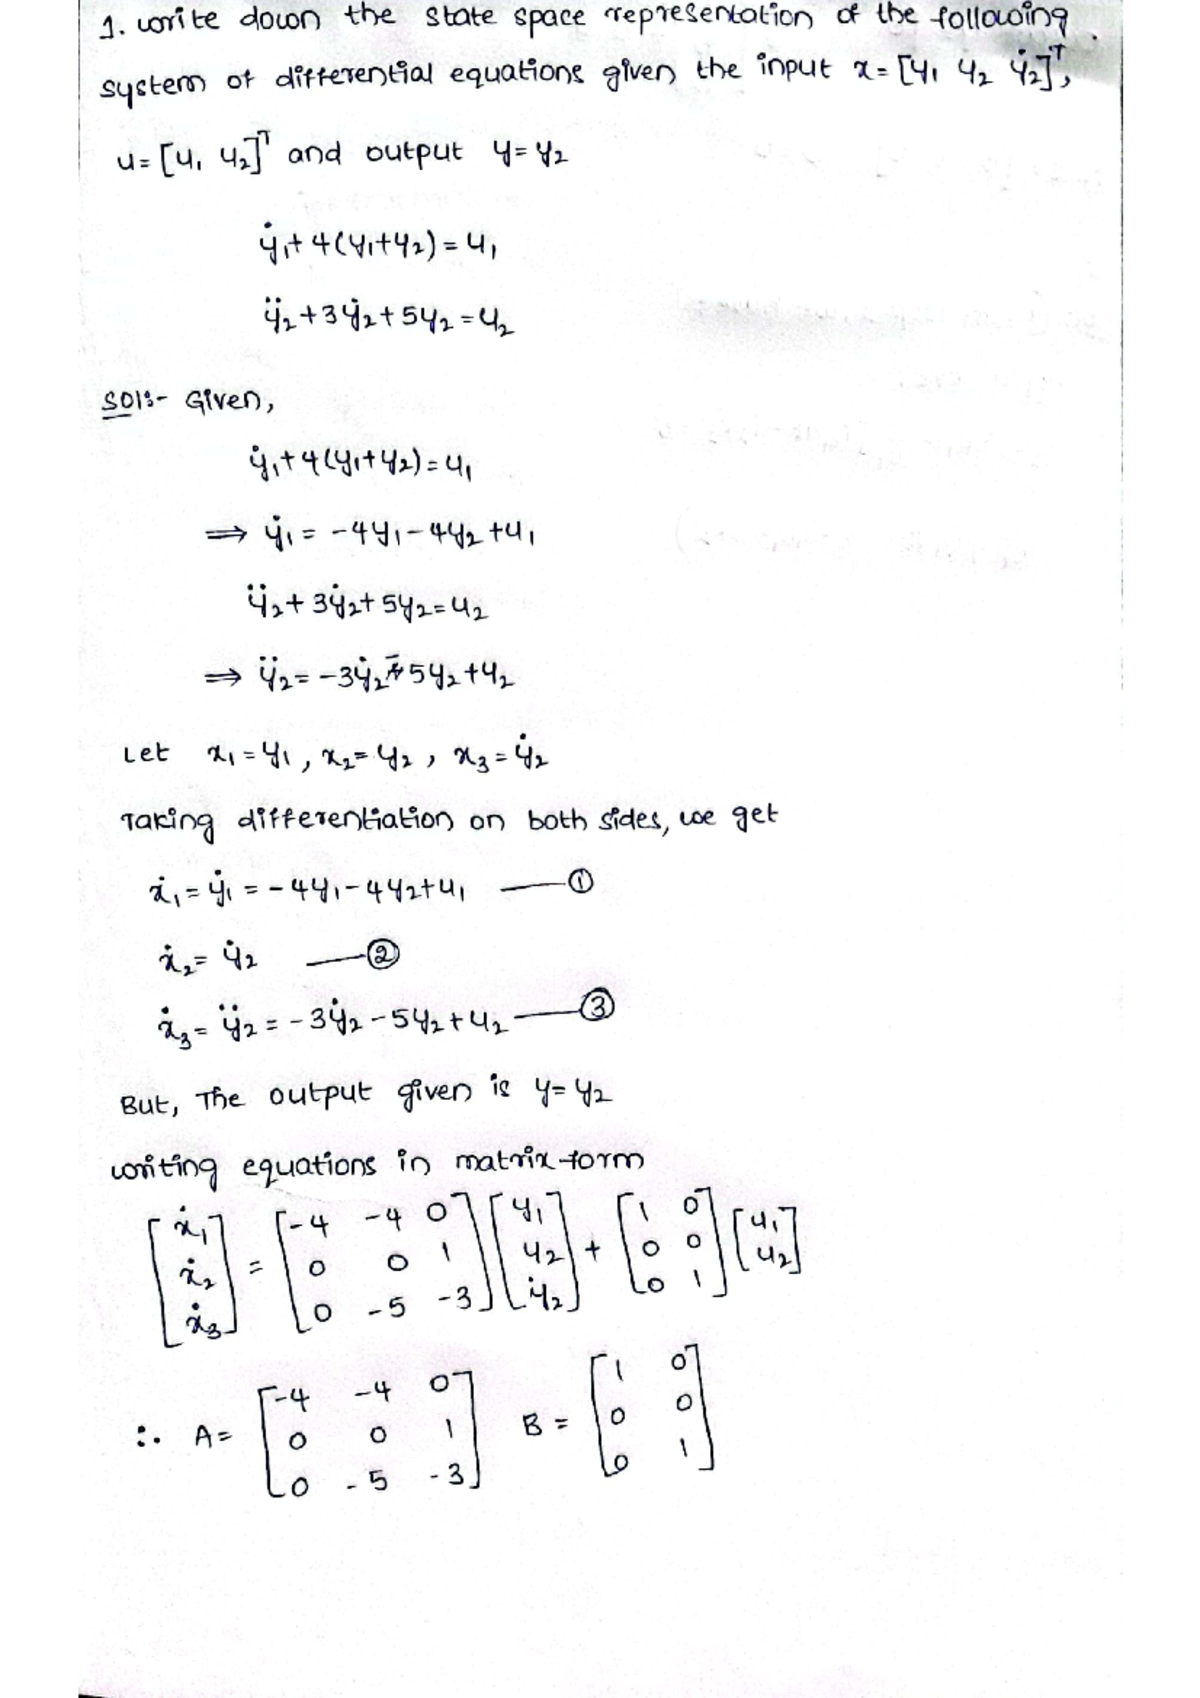 1. write down the state space representation of the following
system of differential equations given the input x = [y₁ y₂ ẏ₂]ᵀ,
u = [u₁ u₂]ᵀ and output y = y₂
ẏ₁ + 4(y₁+y₂) = u₁
ÿ₂ + 3ẏ₂ + 5y₂ = u₂
Sol:- Given,
ẏ₁ + 4(y₁+y₂) = u₁
⟹ ẏ₁ = -4y₁ - 4y₂ + u₁
ÿ₂ + 3ẏ₂ + 5y₂ = u₂
⟹ ÿ₂ = -3ẏ₂ - 5y₂ + u₂
Let x₁ = y₁, x₂ = y₂, x₃ = ẏ₂
Taking differentiation on both sides, we get
ẋ₁ = ẏ₁ = -4y₁ - 4y₂ + u₁ —①
ẋ₂ = ẏ₂ —②
ẋ₃ = ÿ₂ = -3ẏ₂ - 5y₂ + u₂ —③
But, The output given is y = y₂
writing equations in matrix form
[ẋ₁ ẋ₂ ẋ₃] = [-4 -4 0; 0 0 1; 0 -5 -3] [y₁ y₂ ẏ₂] + [1 0; 0 0; 0 1] [u₁ u₂]
∴ A = [-4 -4 0; 0 0 1; 0 -5 -3] B = [1 0; 0 0; 0 1]